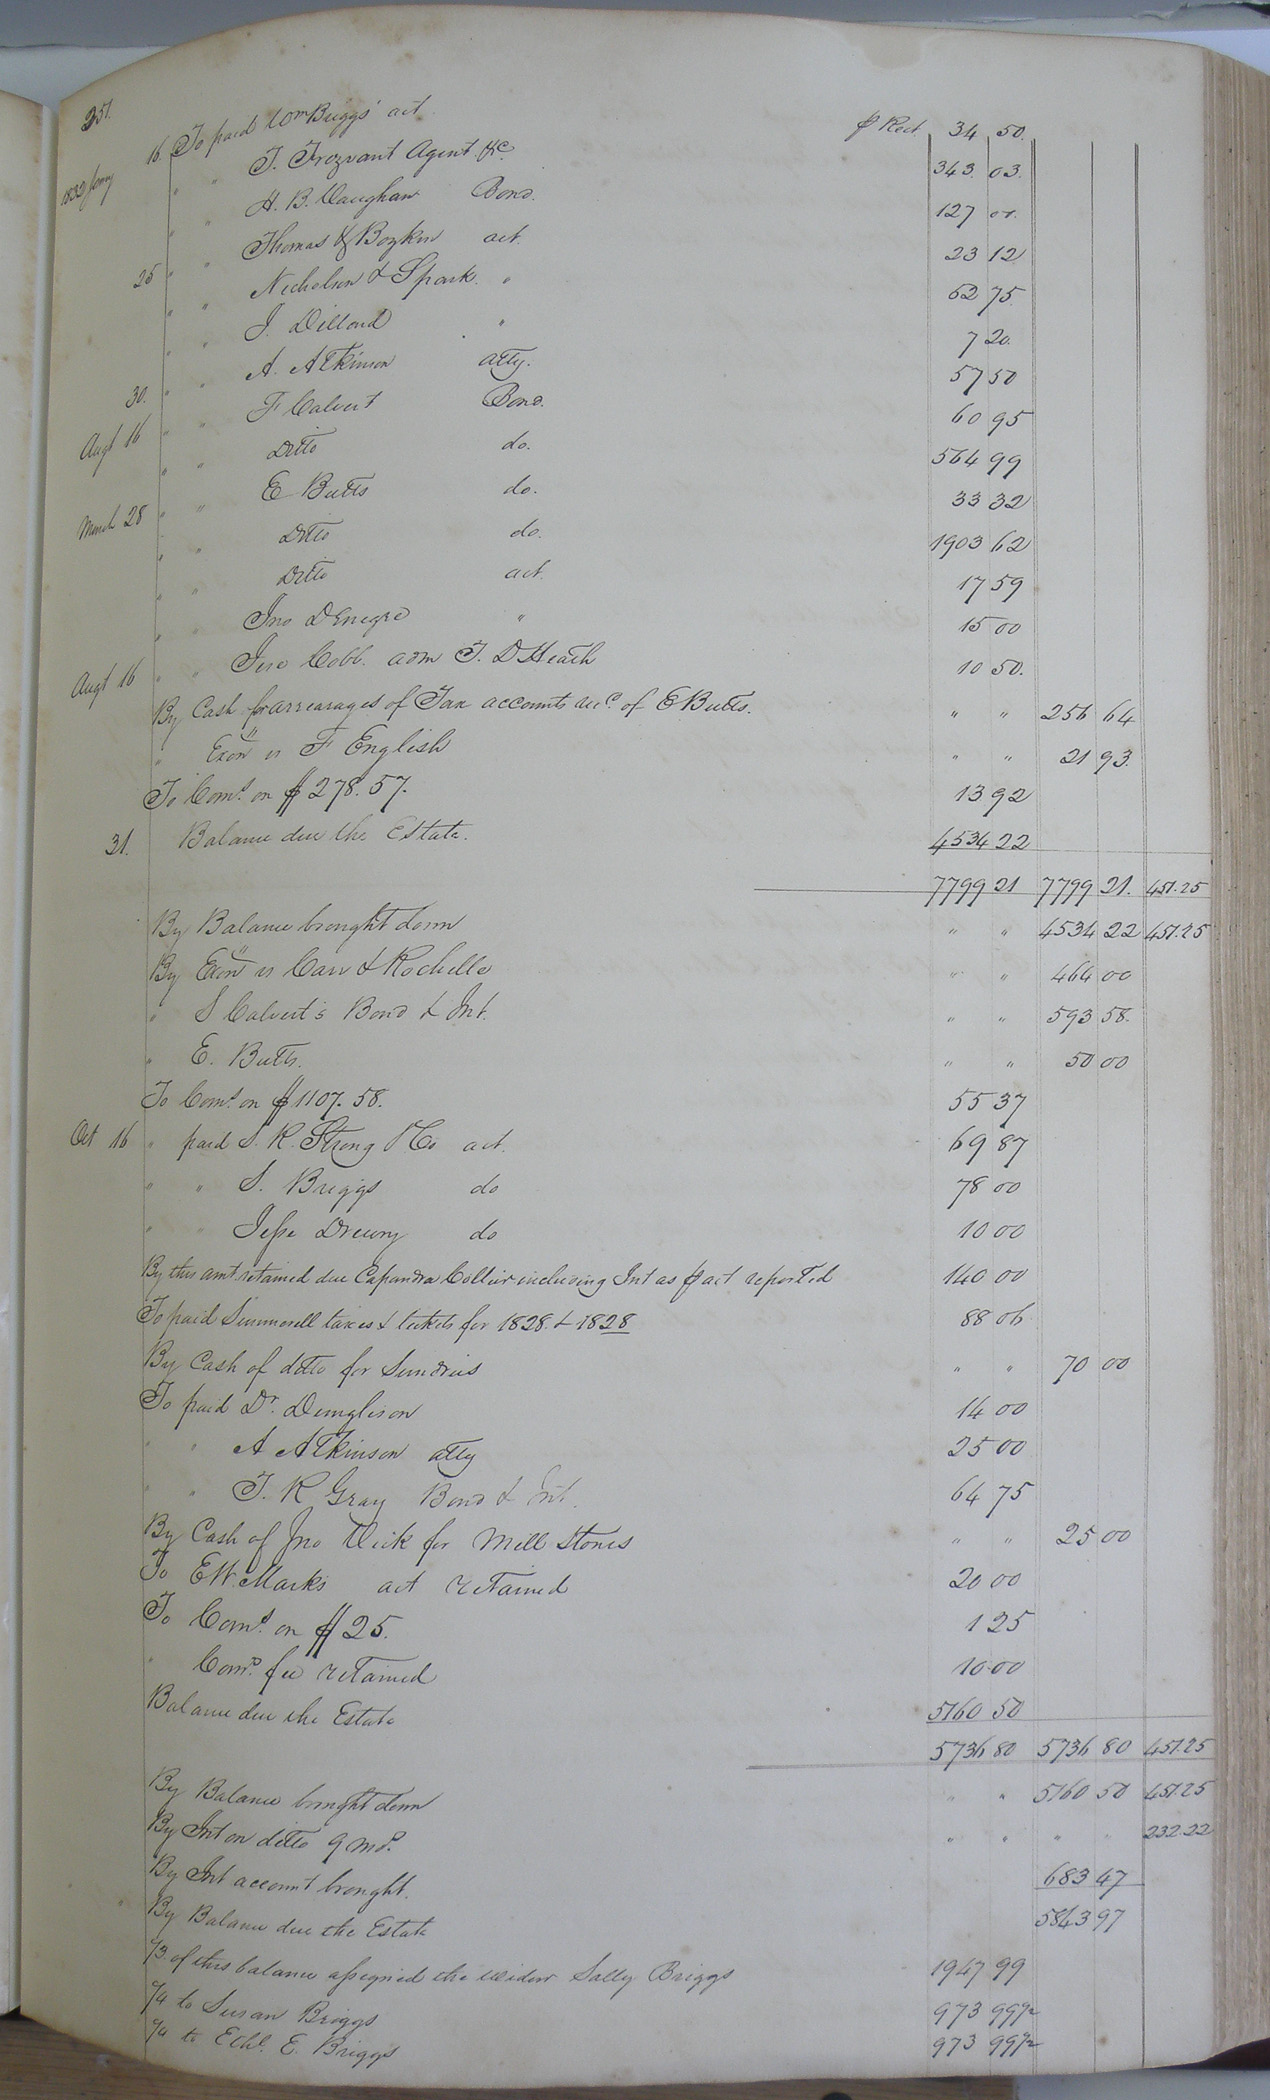 351.
1832 Jany 16. To paid Wm Briggs' act. ⅌ Rect 34 50.
" " T. Trezvant Agent &c. 343. 03.
" " H. B. Vaughan Bond. 127 01.
" " Thomas & Boykin act. 23 12
25 " " Nicholson & Spark. " 62 75.
" " J. Dillard " 7 20.
" " A. Atkinson atty. 57 50
30. " " F Calvert Bond. 60 95
Augt 16 " " Ditto do. 564 99
" " E Butts do. 33 32
March 28 " " Ditto do. 1903 62
" " Ditto act. 17 59
" " Jno D Enegre " 15 00
" " Jere Cobb. adm T. D Heath 10 50.
Augt 16 By Cash for arrearages of Tax accounts &c. of E Butts. " " 256 64
" Exon vs F English " " 21 93.
To Coms. on $278.57. 13 92
31. Balance due the Estate. 4534 22
7799 21 7799 21. 451.25
By Balance brought down " " 4534 22 451.25
By Exon vs Carr & Rochelle " " 464 00
" S Calvert's Bond & Int. " " 593 58.
" E. Butts. " " 50 00
To Coms. on $1107.58. 55 37
Oct 16 " paid S. K. Strong & Co act. 69 87
" " S. Briggs do 78 00
" " Jesse Drewry do 10 00
By this amt retained due Capandra Collier including Int as ⅌ act reported 140 00
To paid Summerell taxes & tickets for 1828. & 1828 88 06
By Cash of ditto for Sundries " " 70 00
To paid Dr. Dunglison 14 00
" " A Atkinson atty 25 00
" " T. R Gray Bond & Int. 64 75
By Cash of Jno Vick for Mill Stones " " 25 00
To E W. Marks act retained 20 00
To Coms. on $25. 1 25
" Comr. fee retained 10.00
Balance due the Estate 5160 50
5736 80 5736 80 451.25
By Balance brought down " " 5160 50 451.25
By Int on ditto 9 mos. " " " " 232.22
By Int account brought. 683 47
By Balance due the Estate 5843 97
1/3. of this balance assigned the widow Sally Briggs 1947 99
1/4 to Susan Briggs 973 99 1/2
1/4 to E. Briggs 973 99 1/2